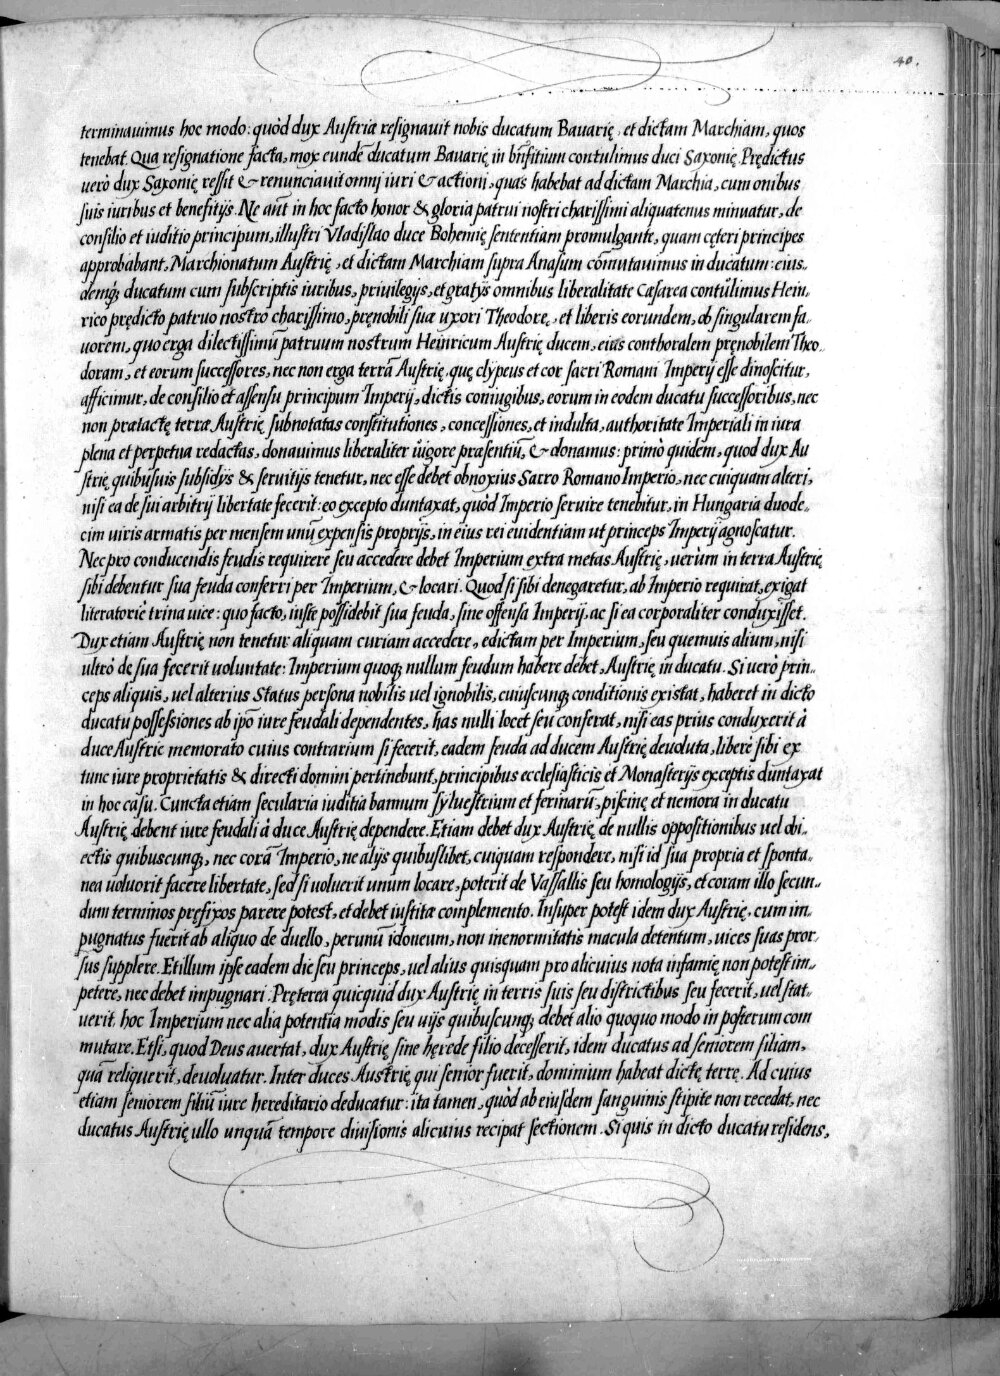 40.
terminauimus hoc modo: quòd dux Austriæ resignauit nobis ducatum Bauarię, et dictam Marchiam, quos
tenebat. Qua resignatione facta, mox eundē ducatum Bauarię in bnfitium contulimus duci Saxonię. Prędictus
uerò dux Saxonię cessit & renunciauit omnj iuri & actioni, quas habebat ad dictam Marchiā, cum omibus
suis iuribus et benefitijs. Ne aūt in hoc facto honor & gloria patrui nostri charissimi aliquatenus minuatur, de
consilio et iuditio principum, illustri Vladislao duce Bohemię sententiam promulgante, quam cęteri principes
approbabant, Marchionatum Austrię, et dictam Marchiam supra Anasum cōmutauimus in ducatum: eius„
demq; ducatum cum subscriptis iuribus, priuilegijs, et gratijs omnibus liberalitate Cæsarea contulimus Hein„
rico prędicto patruo nostro charissimo, pręnobili suæ uxori Theodorę, et liberis eorundem, ob singularem fa„
uorem, quo erga dilectissimū patruum nostrum Heinricum Austrię ducem, eius conthoralem pręnobilem Theo„
doram, et eorum successores, nec non erga terrā Austrię, quę clypeus et cor sacri Romani Imperij esse dinoscitur,
afficimur, de consilio et assensu principum Imperij, dictis coniugibus, eorum in eodem ducatu successoribus, nec
non prætactę terræ Austrię subnotatas constitutiones, concessiones, et indulta, authoritate Imperiali in iura
plena et perpetua redactas, donauimus liberaliter uigore præsentiū, & donamus: primò quidem, quod dux Au
strię quibusuis subsidijs & seruitijs tenetur, nec esse debet obnoxius Sacro Romano Imperio, nec cuiquam alteri,
nisi ea de sui arbitrij libertate fecerit: eo excepto duntaxat, quòd Imperio seruire tenebitur, in Hungaria duode„
cim uiris armatis per mensem unū expensis proprijs, in eius rei euidentiam ut princeps Imperij agnoscatur.
Nec pro conducendis feudis requirere seu accedere debet Imperium extra metas Austrię, uerùm in terra Austrię
sibi debentur sua feuda conferri per Imperium, & locari. Quod si sibi denegaretur, ab Imperio requirat, exigat
literatoriè trina uice: quo facto, iustè possidebit sua feuda, sine offensa Imperij, ac si ea corporaliter conduxisset.
Dux etiam Austrię non tenetur aliquam curiam accedere, edictam per Imperium, seu quemuis alium, nisi
ultrò de sua fecerit uoluntate: Imperium quoq; nullum feudum habere debet, Austrię in ducatu. Si uerò prin„
ceps aliquis, uel alterius Status persona nobilis uel ignobilis, cuiuscunq; conditionis existat, haberet in dicto
ducatu possessiones ab ipō iure feudali dependentes, has nulli locet seu conferat, nisi eas prius conduxerit à
duce Austrię memorato cuius contrarium si fecerit, eadem feuda ad ducem Austrię deuoluta, liberè sibi ex
tunc iure proprietatis & directi domini pertinebunt, principibus ecclesiasticis et Monasterijs exceptis duntaxat
in hoc casu. Cuncta etiam secularia iuditia bannum syluestrium et ferinarū, piscinę et nemora in ducatu
Austrię debent iure feudali à duce Austrię dependere. Etiam debet dux Austrię, de nullis oppositionibus uel obi„
ectis quibuscunq;, nec corā Imperio, ne alijs quibuslibet, cuiquam respondere, nisi id sua propria et sponta„
nea uoluerit facere libertate, sed si uoluerit unum locare, poterit de Vassallis seu homologijs, et coram illo secun„
dum terminos pręfixos parere potest, et debet iustitæ complemento. Insuper potest idem dux Austrię, cum im„
pugnatus fuerit ab aliquo de duello, per unū idoneum, non inenormitatis macula detentum, uices suas pror„
sus supplere. Et illum ipse eadem die seu princeps, uel alius quisquam pro alicuius nota infamię non potest im„
petere, nec debet impugnari. Pręterea quicquid dux Austrię in terris suis seu districtibus seu fecerit, uel stat„
uerit, hoc Imperium nec alia potentia modis seu uijs quibuscunq; debet alio quoquo modo in posterum com
mutare. Etsi, quod Deus auertat, dux Austrię sine hęrede filio decesserit, idem ducatus ad seniorem filiam,
quā reliquerit, deuoluatur. Inter duces Austrię qui senior fuerit, dominium habeat dictę terrę. Ad cuius
etiam seniorem filiū iure hereditario deducatur: ita tamen, quòd ab eiusdem sanguinis stipite non recedat, nec
ducatus Austrię ullo unquā tempore diuisionis alicuius recipat sectionem. Si quis in dicto ducatu residens,